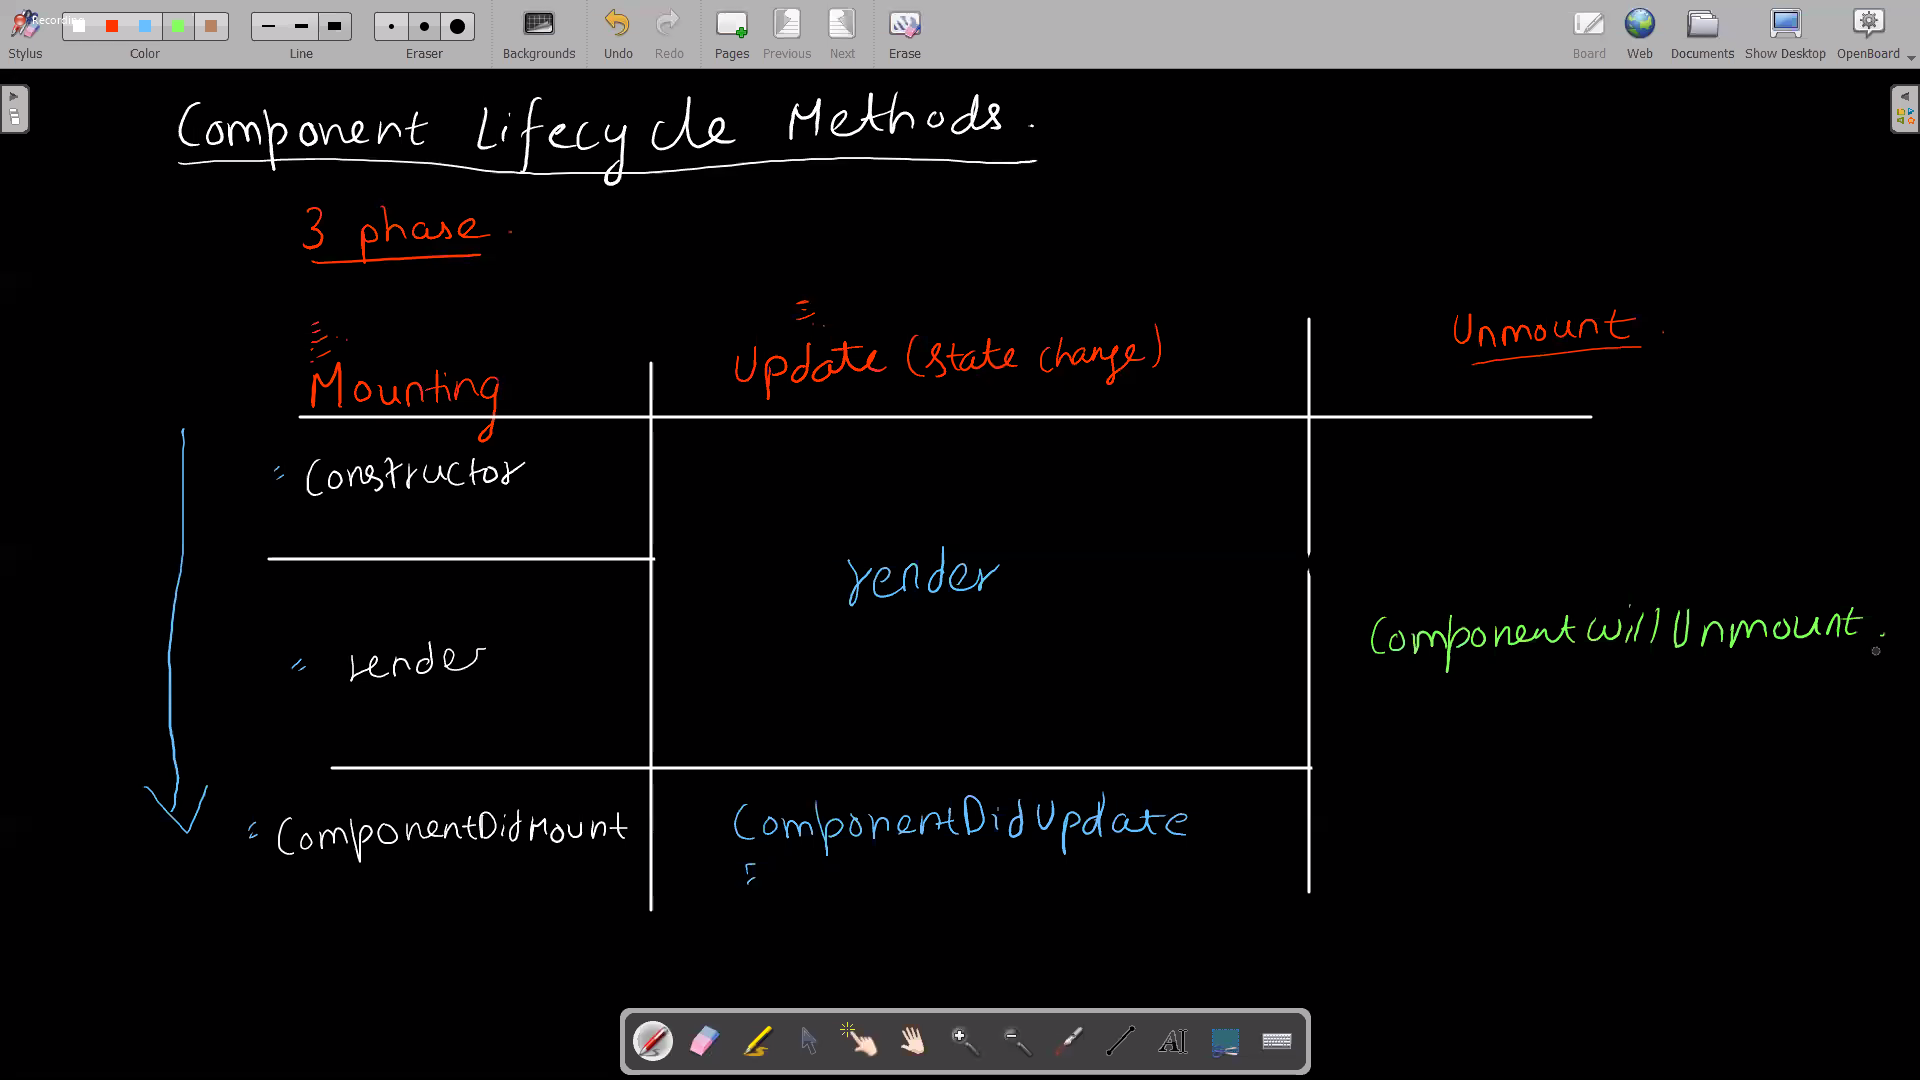 Recording
Stylus Color Line Eraser Backgrounds Undo Redo Pages Previous Next Erase Board Web Documents Show Desktop OpenBoard
Component Lifecycle Methods.
3 phase.
Mounting Update (state change) Unmount.
Constructor
render render
ComponentWillUnmount.
ComponentDidMount ComponentDidUpdate
AI